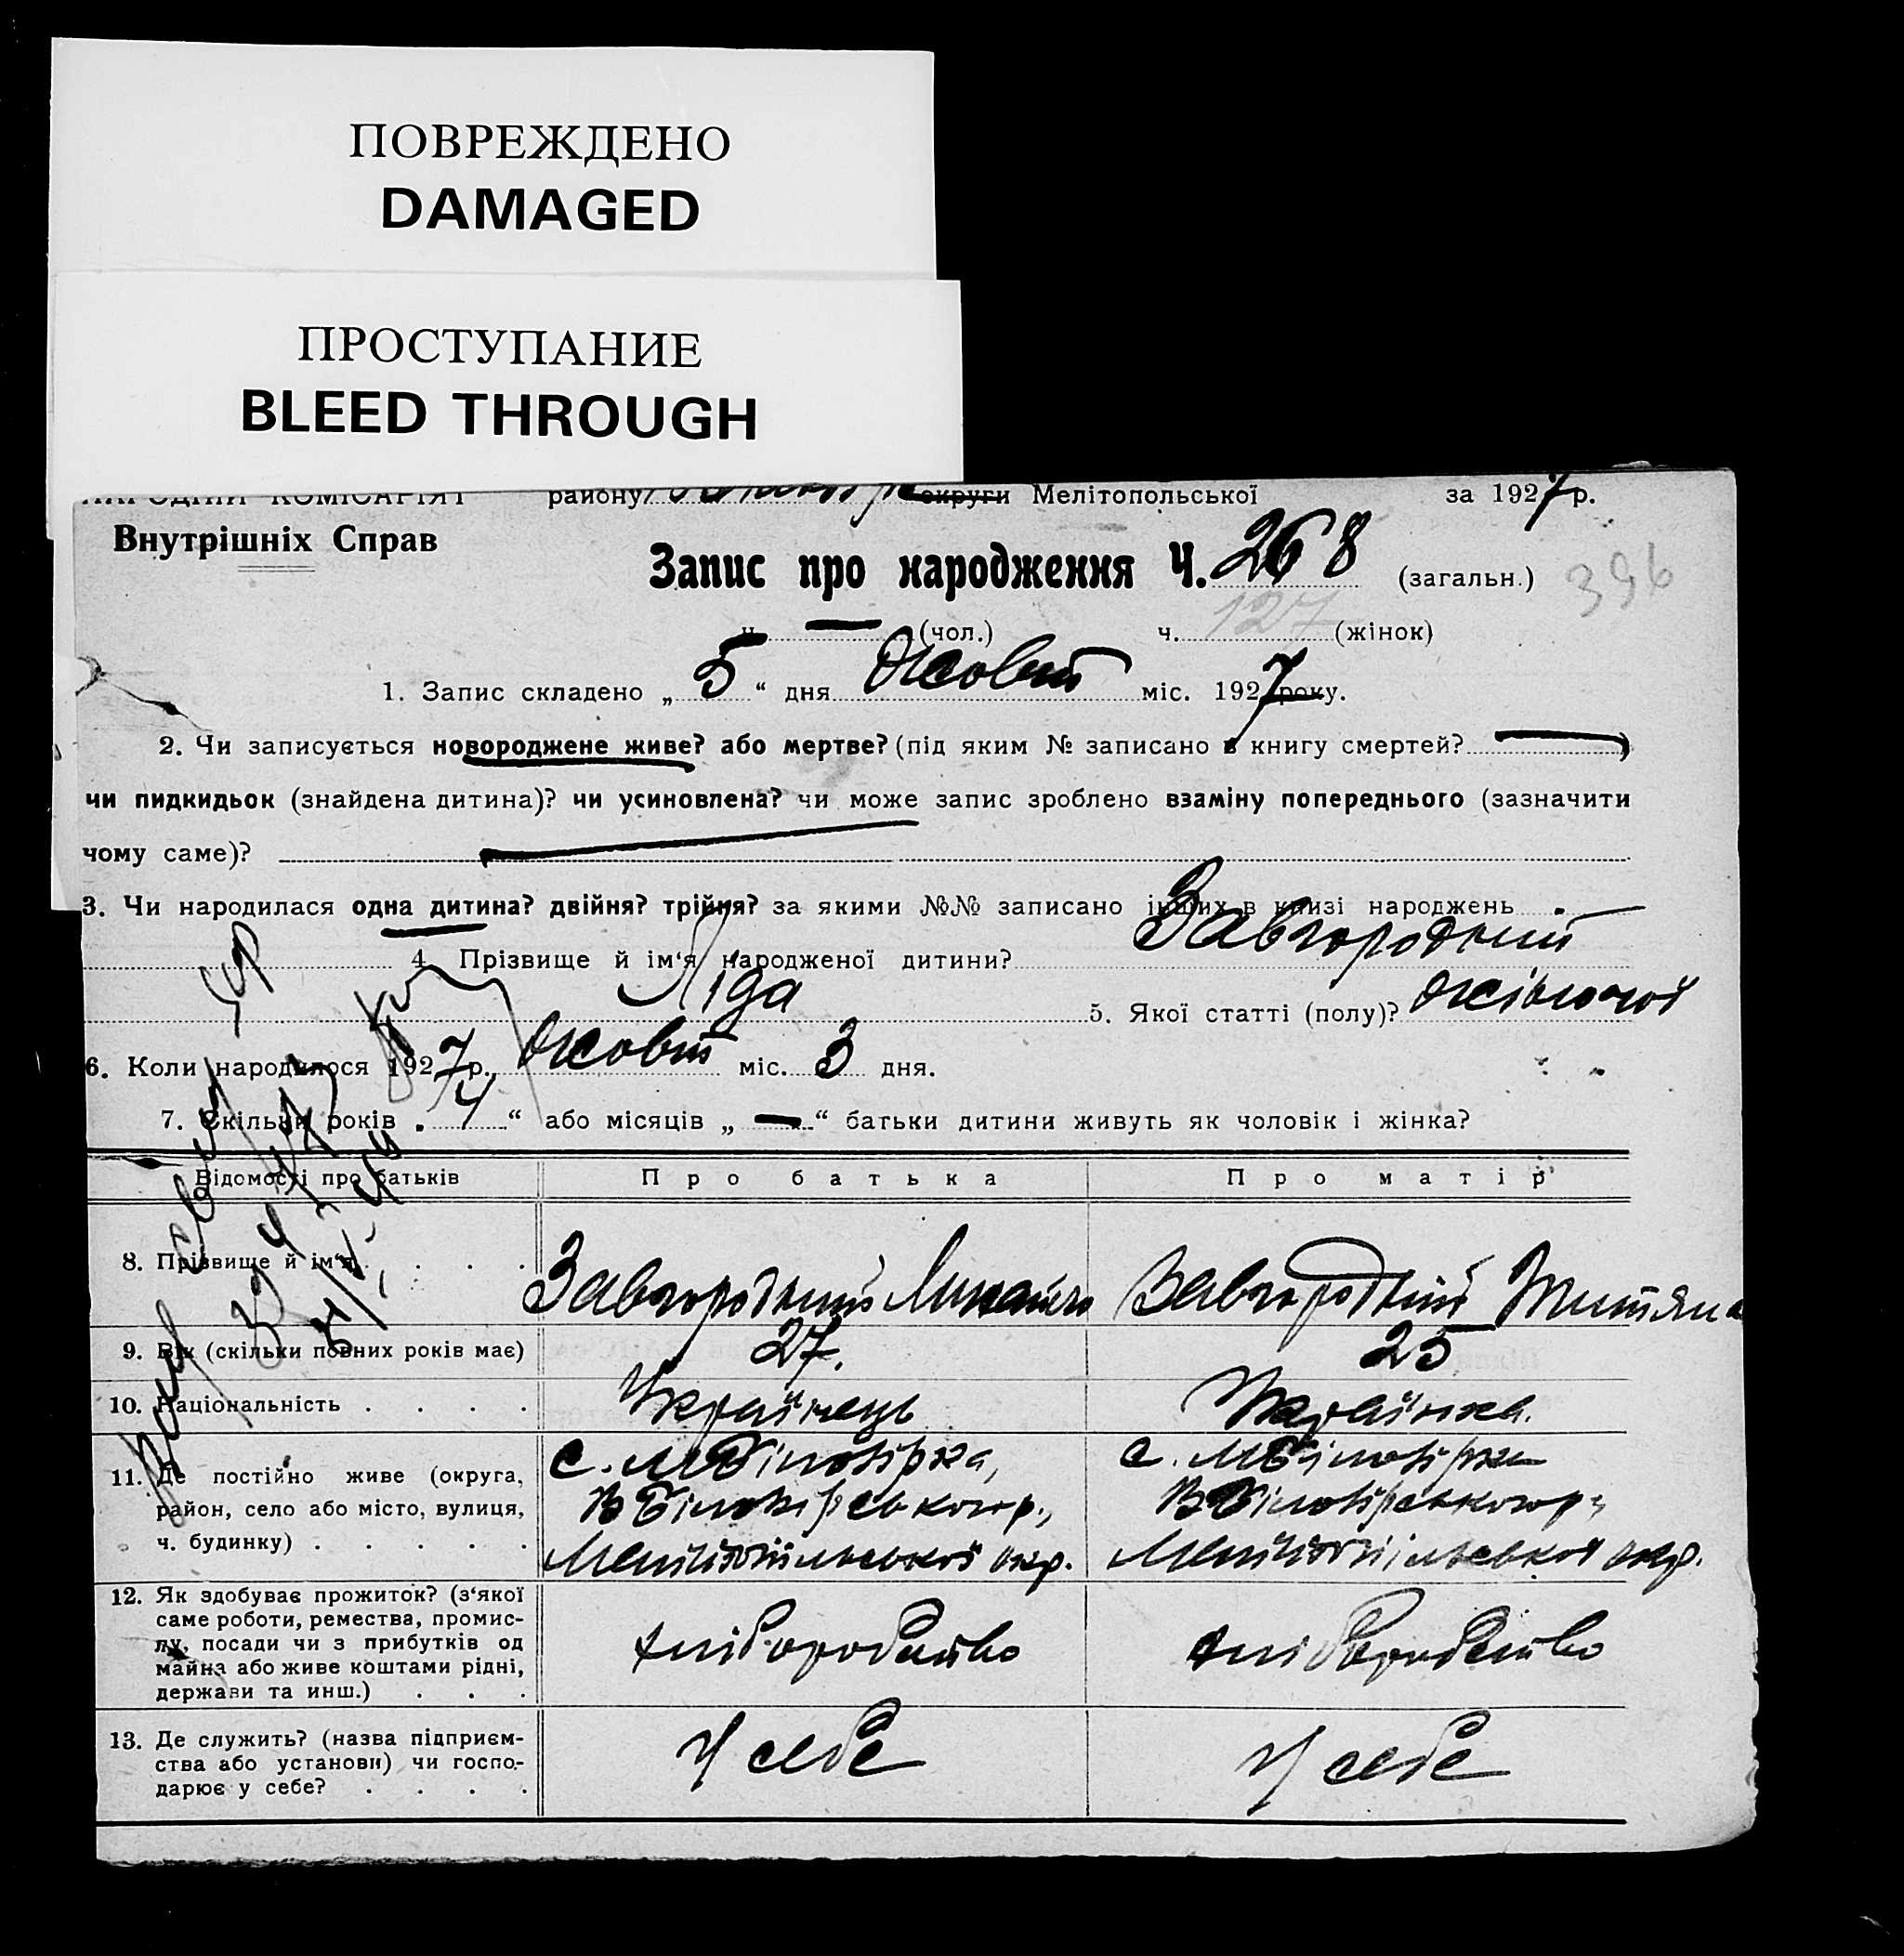 ПОВРЕЖДЕНО
DAMAGED
ПРОСТУПАНИЕ
BLEED THROUGH
НАРОДНІЙ КОМІСАРІЯТ району округи Мелітопольської за 1927 р.
Внутрішніх Справ
Запис про народження Ч. 268 (загальн.) 396
ч. — (чол.) ч. 127 (жінок)
1. Запис складено „ 5 “ дня Жовт міс. 1927 року.
2. Чи записується новороджене живе? або мертве? (під яким № записано в книгу смертей?
чи пидкидьок (знайдена дитина)? чи усиновлена? чи може запис зроблено взаміну попереднього (зазначити
чому саме)?
3. Чи народилася одна дитина? двійня? трійня? за якими №№ записано інших в книзі народжень
4. Прізвище й ім‘я народженої дитини? Завгородний
Ліда 5. Якої статті (полу)? жіночої
6. Коли народилося 1927 р. Жовт міс. 3 дня.
7. Скільки років „ 4 “ або місяців „ — “ батьки дитини живуть як чоловік і жінка?
Відомості про батьків Про батька Про матір
8. Прізвище й ім‘я . . . . Завгородний Михайло Завгородній Титяна
9. Вік (скільки повних років має) 27. 25
10. Національність . . . . Українець Українка.
11. Де постійно живе (округа, с. МБілозірка, с. МБілозірка
район, село або місто, вулиця, ВБілозірськогор., ВБілозірськогор.,
ч. будинку) . . . . . Мелітопільської окр. Мелітопільської окр.
12. Як здобуває прожиток? (з‘якої
саме роботи, ремества, промис-
лу, посади чи з прибутків од хліборобство хліборобство
майна або живе коштами рідні,
держави та инш.) . . .
13. Де служить? (назва підприєм-
ства або установи) чи госпо- У себе У себе
дарює у себе? . . . .